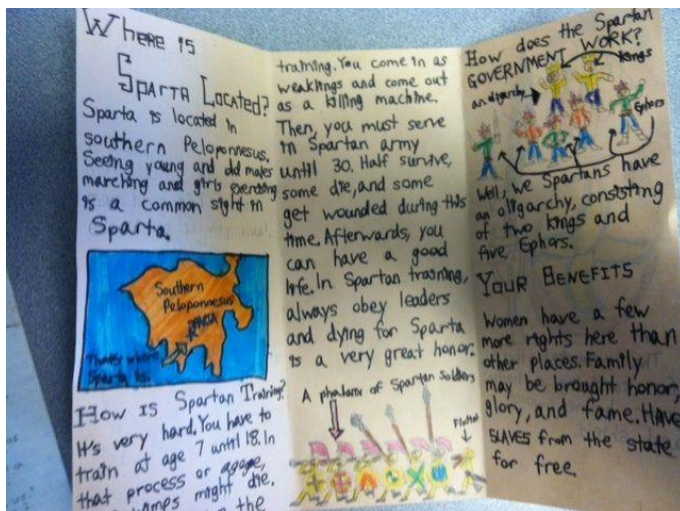 Where is
Sparta Located?
Sparta is located in
southern Peloponnesus.
Seeing young and old males
marching and girls exercising
is a common sight in
Sparta.
Southern
Peloponnesus
SPARTA
That's where
Sparta is.
How is Spartan Training?
It's very hard. You have to
train at age 7 until 18. In
that process or agoge,
might die.
the
training. You come in as
weaklings and come out
as a killing machine.
Then, you must serve
in Spartan army
until 30. Half survive,
some die, and some
get wounded during this
time. Afterwards, you
can have a good
life. In Spartan training,
always obey leaders
and dying for Sparta
is a very great honor.
A phalanx of Spartan Soldiers
Flutist
How does the Spartan
GOVERNMENT WORK?
Kings
an oligarchy
Ephors
Well, we Spartans have
an oligarchy, consisting
of two kings and
five Ephors.
Your Benefits
Women have a few
more rights here than
other places. Family
may be brought honor,
glory, and fame. HAVE
SLAVES from the state
for free.